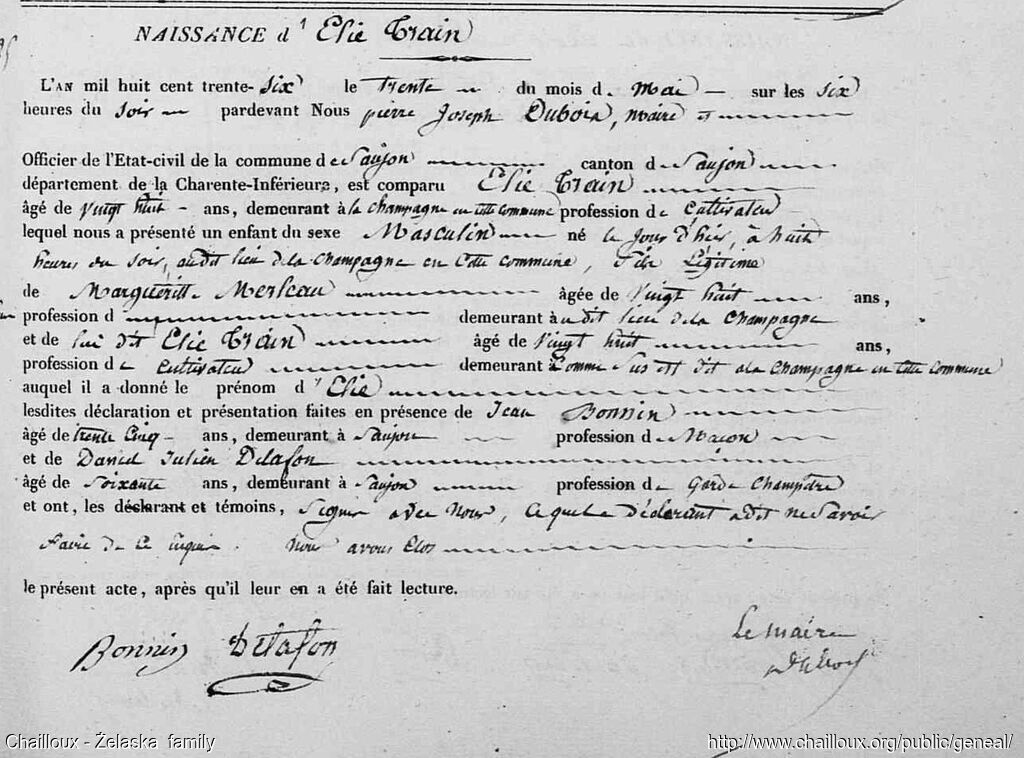 NAISSANCE d' Elie Train
L'AN mil huit cent trente-six le trente du mois d e mai sur les six
heures du soir pardevant Nous pierre Joseph Dubois, maire
Officier de l'Etat-civil de la commune d e Saujon canton d e Saujon
département de la Charente-Inférieure, est comparu Elie Train
âgé de vingt huit ans, demeurant à la champagne en cette commune profession d e Cultivateur
lequel nous a présenté un enfant du sexe Masculin né le jour d'hier, à huit
heures du soir, audit lieu de la champagne en cette commune, fils Légitime
de Margueritte Merleau âgée de vingt huit ans,
profession d demeurant à u dit lieu de la champagne
et de lui dit Elie Train âgé de vingt huit ans,
profession d e Cultivateur demeurant comme sus est dit à la champagne en cette commune
auquel il a donné le prénom d' Elie
lesdites déclaration et présentation faites en présence de Jean Bonnin
âgé de trente cinq ans, demeurant à Saujon profession d e Macon
et de Daniel Julien Delafon
âgé de Soixante ans, demeurant à Saujon profession de Garde Champêtre
et ont, les déclarant et témoins, Signé avec Nous, ce que le Déclarant a dit ne Savoir
faire de ce requis. Nous avons Clos
le présent acte, après qu'il leur en a été fait lecture.
Bonnin Delafon
Le maire
Dubois
Chailloux - Żelaska family http://www.chailloux.org/public/geneal/